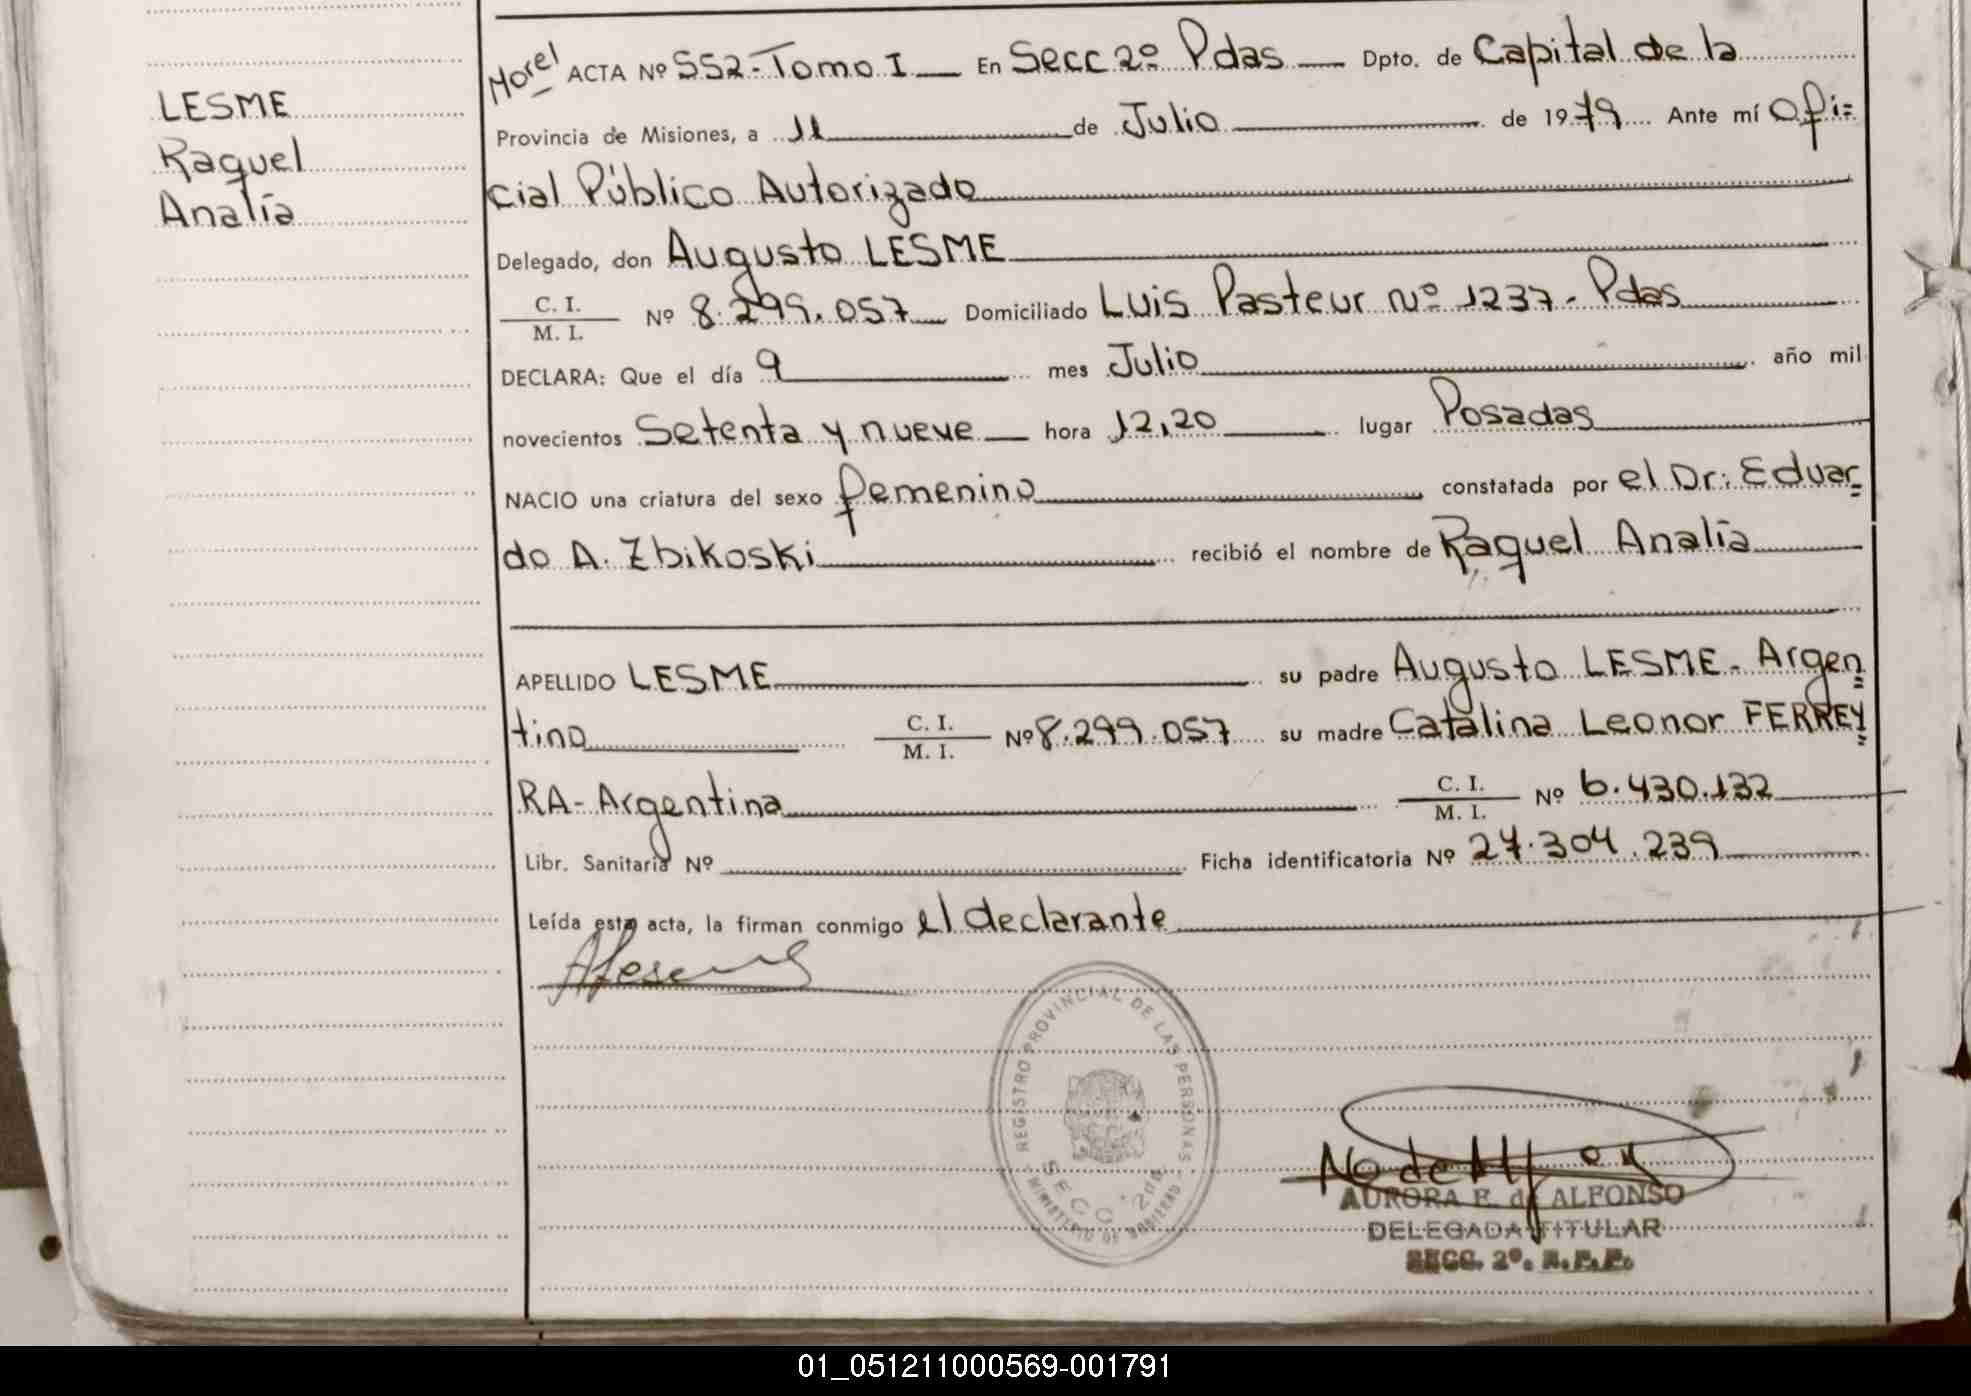 Morel ACTA Nº 552 - Tomo I En Secc 2º Pdas Dpto. de Capital de la
LESME
Provincia de Misiones, a 11 de Julio de 1979 Ante mí Ofi=
Raquel
cial Público Autorizado
Analía
Delegado, don Augusto LESME
C. I.
M. I. Nº 8.299.057 Domiciliado Luis Pasteur Nº 1237 - Pdas
DECLARA: Que el día 9 mes Julio año mil
novecientos Setenta y nueve hora 12,20 lugar Posadas
NACIO una criatura del sexo femenino constatada por el Dr: Eduar=
do A. Zbikoski recibió el nombre de Raquel Analía
APELLIDO LESME su padre Augusto LESME - Argen=
tino C. I. M. I. Nº 8.299.057 su madre Catalina Leonor FERREY=
RA - Argentina C. I. M. I. Nº 6.430.132
Libr. Sanitaria Nº Ficha identificatoria Nº 27.304.239
Leída esta acta, la firman conmigo el declarante
REGISTRO PROVINCIAL DE LAS PERSONAS
SECC. 2da
MINISTERIO DE GOBIERNO
AURORA E. de ALFONSO
DELEGADA TITULAR
SECC. 2º. R.P.P.
01_051211000569-001791